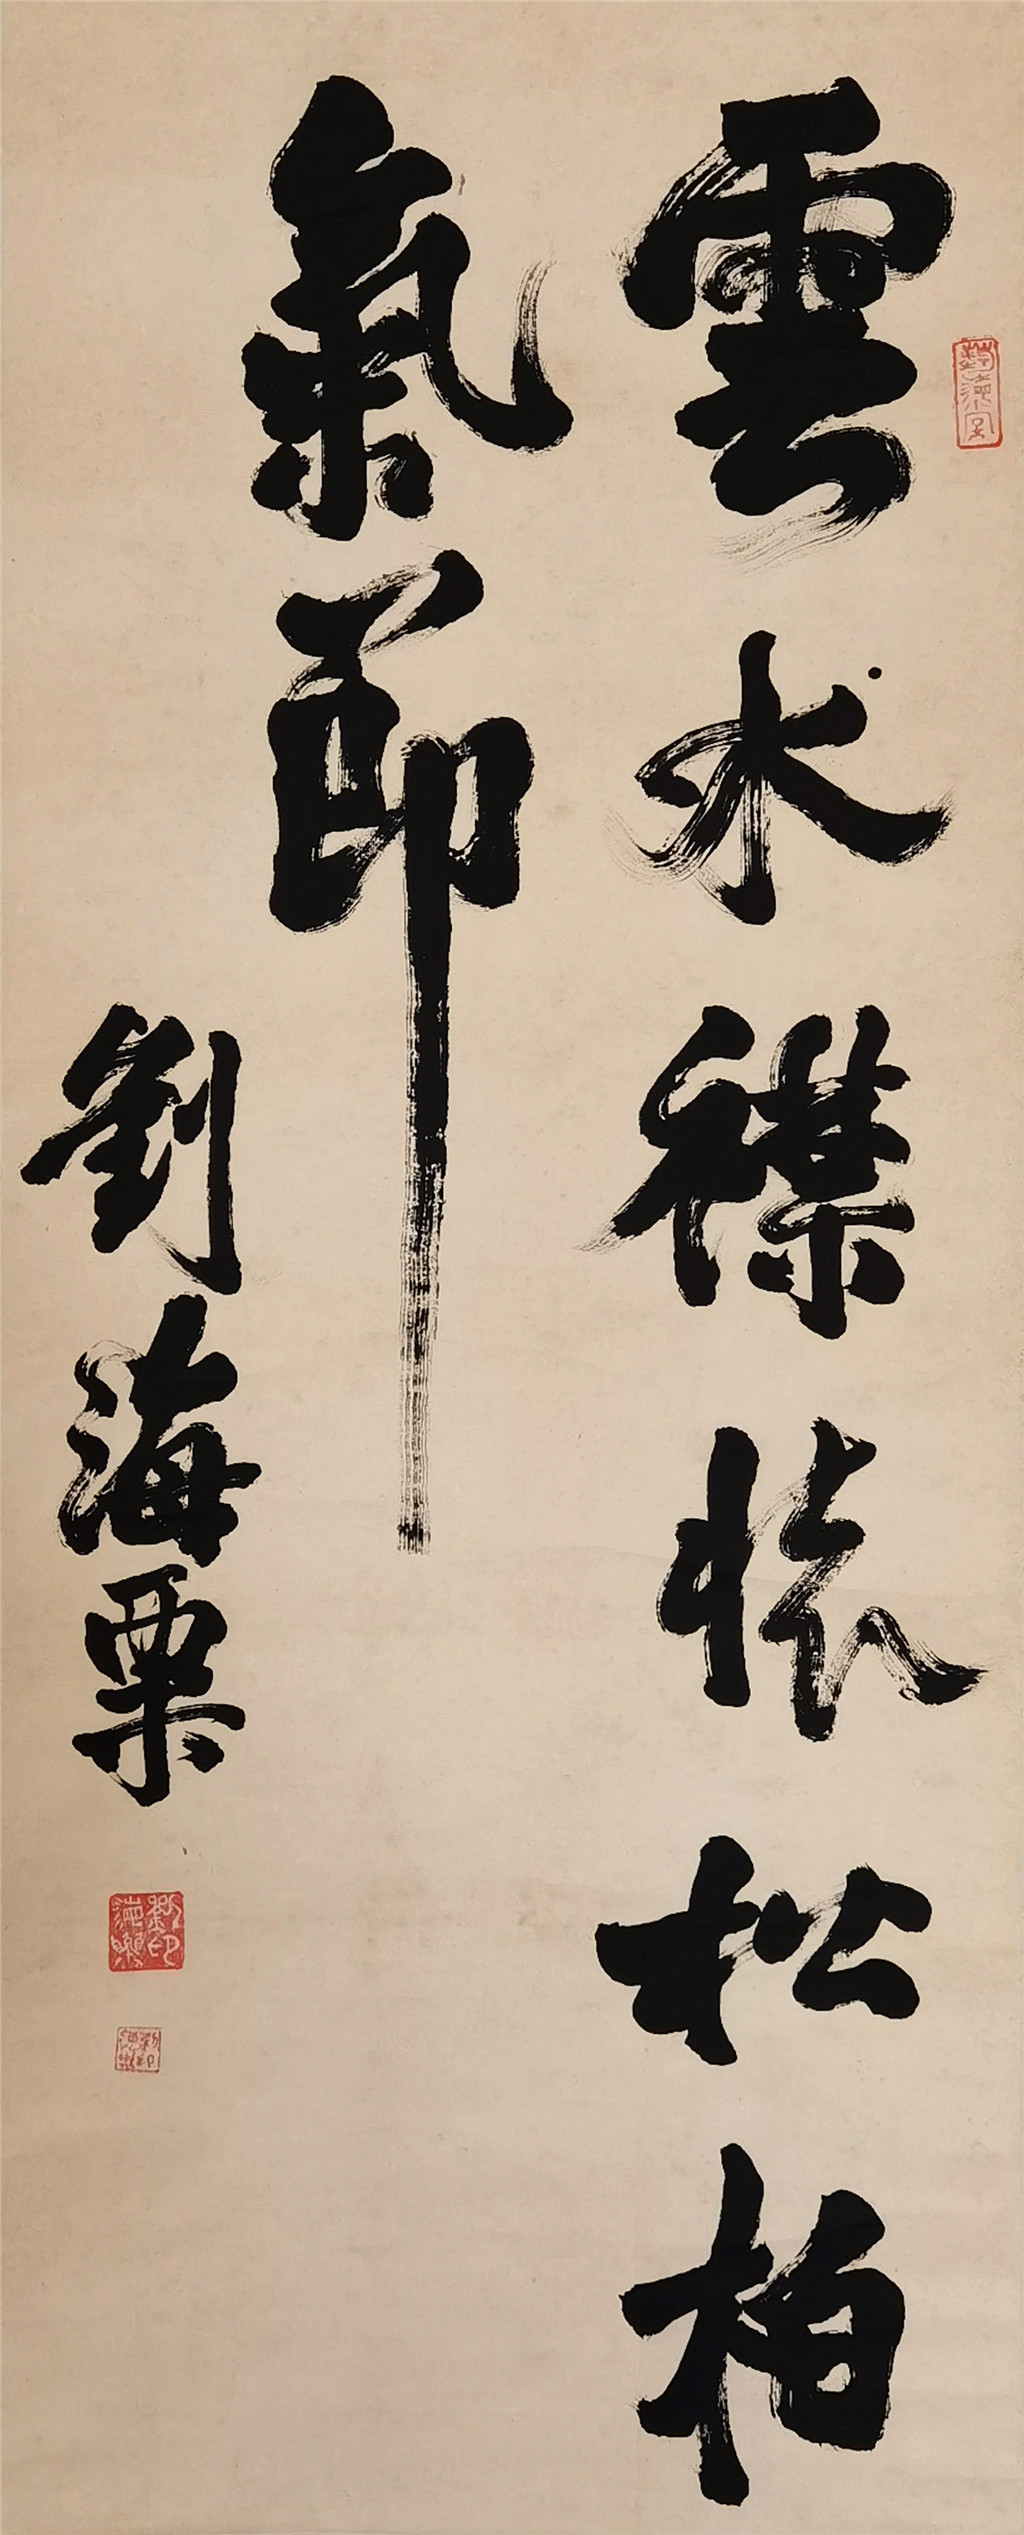 雲水襟懷松柏
氣節
劉海粟